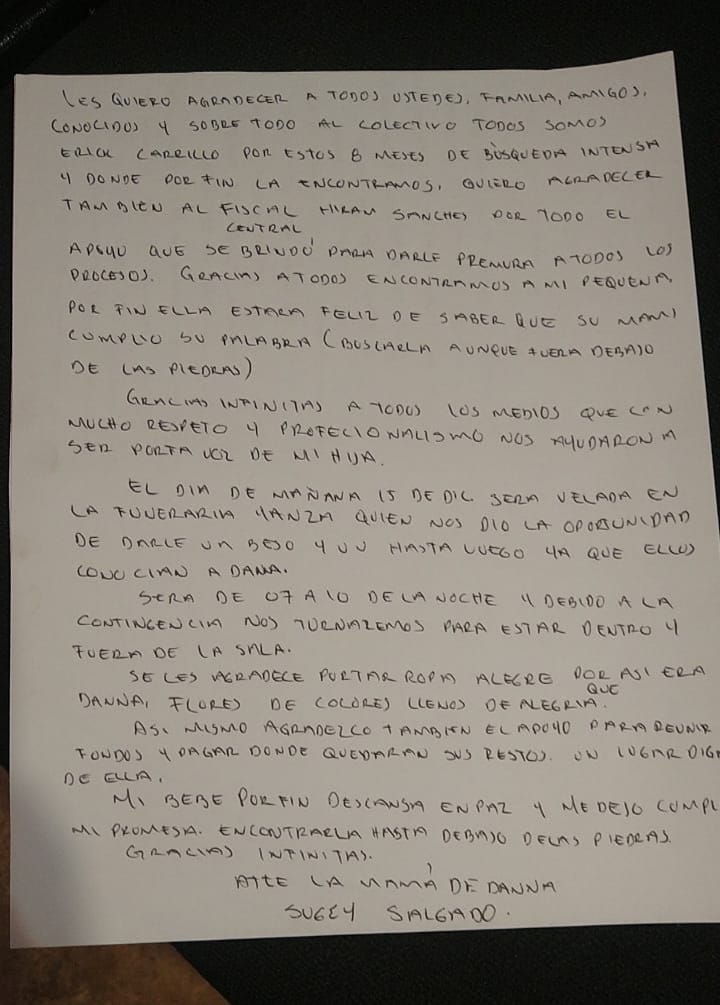 LES QUIERO AGRADECER A TODOS USTEDES, FAMILIA, AMIGOS,
CONOCIDOS Y SOBRE TODO AL COLECTIVO TODOS SOMOS
ERICK CARRILLO POR ESTOS 8 MESES DE BÚSQUEDA INTENSA
Y DONDE POR FIN LA ENCONTRAMOS, QUIERO AGRADECER
TAMBIEN AL FISCAL HIRAM SANCHES POR TODO EL
CENTRAL
APOYO QUE SE BRINDÓ PARA DARLE PREMURA A TODOS LOS
PROCESOS. GRACIAS A TODOS ENCONTRAMOS A MI PEQUEÑA,
POR FIN ELLA ESTARA FELIZ DE SABER QUE SU MAMI
CUMPLIO SU PALABRA (BUSCARLA AUNQUE FUERA DEBAJO
DE LAS PIEDRAS)
GRACIAS INFINITAS A TODOS LOS MEDIOS QUE CON
MUCHO RESPETO Y PROFECIONALISMO NOS AYUDARON A
SER PORTA VOZ DE MI HIJA.
EL DIA DE MAÑANA 15 DE DIC. SERA VELADA EN
LA FUNERARIA YANZA QUIEN NOS DIO LA OPORTUNIDAD
DE DARLE UN BESO Y UN HASTA LUEGO YA QUE ELLOS
CONOCIAN A DANNA.
SERA DE 07 A 10 DE LA NOCHE Y DEBIDO A LA
CONTINGENCIA NOS TURNAREMOS PARA ESTAR DENTRO Y
FUERA DE LA SALA.
SE LES AGRADECE PORTAR ROPA ALEGRE POR ASI ERA
QUE
DANNA, FLORES DE COLORES LLENOS DE ALEGRIA.
ASI MISMO AGRADEZCO TAMBIEN EL APOYO PARA REUNIR
FONDOS Y PAGAR DONDE QUEDARAN SUS RESTOS. UN LUGAR DIG
DE ELLA.
MI BEBE POR FIN DESCANSA EN PAZ Y ME DEJO CUMPL
MI PROMESA. ENCONTRARLA HASTA DEBAJO DE LAS PIEDRAS.
GRACIAS INFINITAS.
ATTE LA MAMÁ DE DANNA
SUGEY SALGADO.